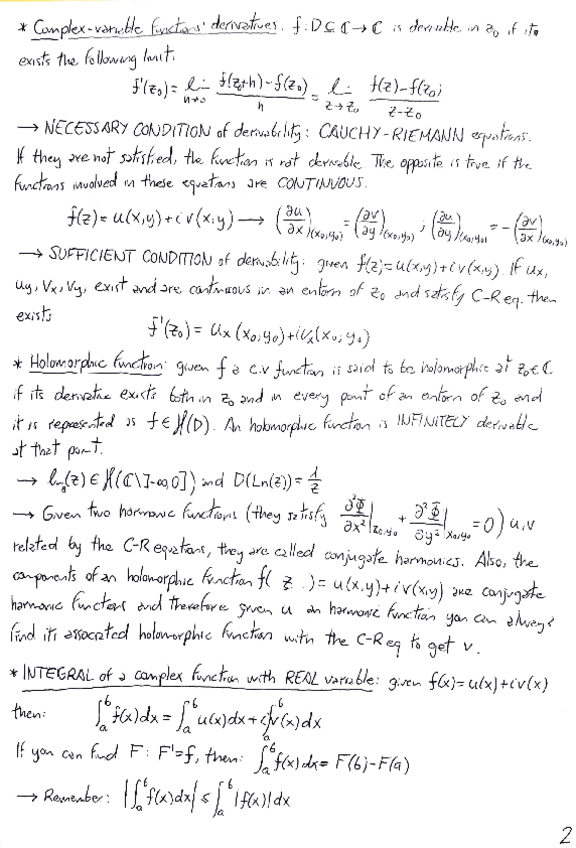 * Complex-variable functions' derivatives. f: D ⊆ ℂ → ℂ is derivable in z₀ if it
exists the following limit:
f'(z₀) = lim_{h→0} (f(z₀+h) - f(z₀))/h = lim_{z→z₀} (f(z) - f(z₀))/(z - z₀)
→ NECESSARY CONDITION of derivability: CAUCHY-RIEMANN equations.
If they are not satisfied, the function is not derivable. The opposite is true if the
functions involved in these equations are CONTINUOUS.
f(z) = u(x,y) + i v(x,y) → (∂u/∂x)|(x₀,y₀) = (∂v/∂y)|(x₀,y₀) ; (∂u/∂y)|(x₀,y₀) = -(∂v/∂x)|(x₀,y₀)
→ SUFFICIENT CONDITION of derivability: given f(z) = u(x,y) + i v(x,y). If ux,
uy, vx, vy, exist and are continuous in an entorn of z₀ and satisfy C-R eq. then
exists
f'(z₀) = ux(x₀,y₀) + i vx(x₀,y₀)
* Holomorphic function: given f a c.v function is said to be holomorphic at z₀ ∈ ℂ
if its derivative exists both in z₀ and in every point of an entorn of z₀ and
it is represented as f ∈ H(D). An holomorphic function is INFINITELY derivable
at that point.
→ (z) ∈ H(ℂ\]-∞,0]) and D(Ln(z)) = 1/z
→ Given two harmonic functions (they satisfy ∂²Φ/∂x²|x₀,y₀ + ∂²Φ/∂y²|x₀,y₀ = 0) u,v
related by the C-R equations, they are called conjugate harmonics. Also, the
components of an holomorphic function f( z ) = u(x,y) + i v(x,y) are conjugate
harmonic functions and therefore given u an harmonic function you can always
find its associated holomorphic function with the C-R eq to get v.
* INTEGRAL of a complex function with REAL variable: given f(x) = u(x) + i v(x)
then: ∫_a^b f(x)dx = ∫_a^b u(x)dx + i∫_a^b v(x)dx
If you can find F: F' = f, then: ∫_a^b f(x)dx = F(b) - F(a)
→ Remember: |∫_a^b f(x)dx| ≤ ∫_a^b |f(x)|dx
2